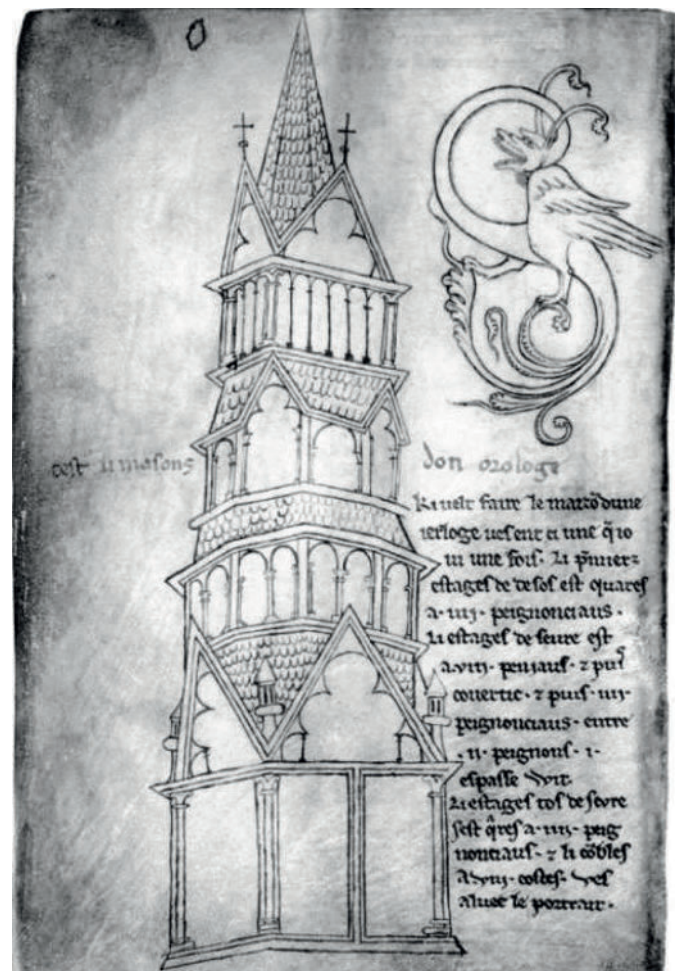 cest li masons don orologe
Ki velt faire le maizõ dune
ierloge vesent ci une q̃ io
vi une fois. Li p̃miers
estages de desos est quares
a .iiij. peignonciaus.
Li estages de seure est
a .viij. peniaus. ⁊ puis
covertic. ⁊ puis .iiij.
peignonciaus. entre
.ij. peignons .i.
espasse wit.
Li estages tos de seure
sest qͣres a .iiij. peig
nonciaus. ⁊ li cõbles
a .viij. costes. ves
aluec le portrait.